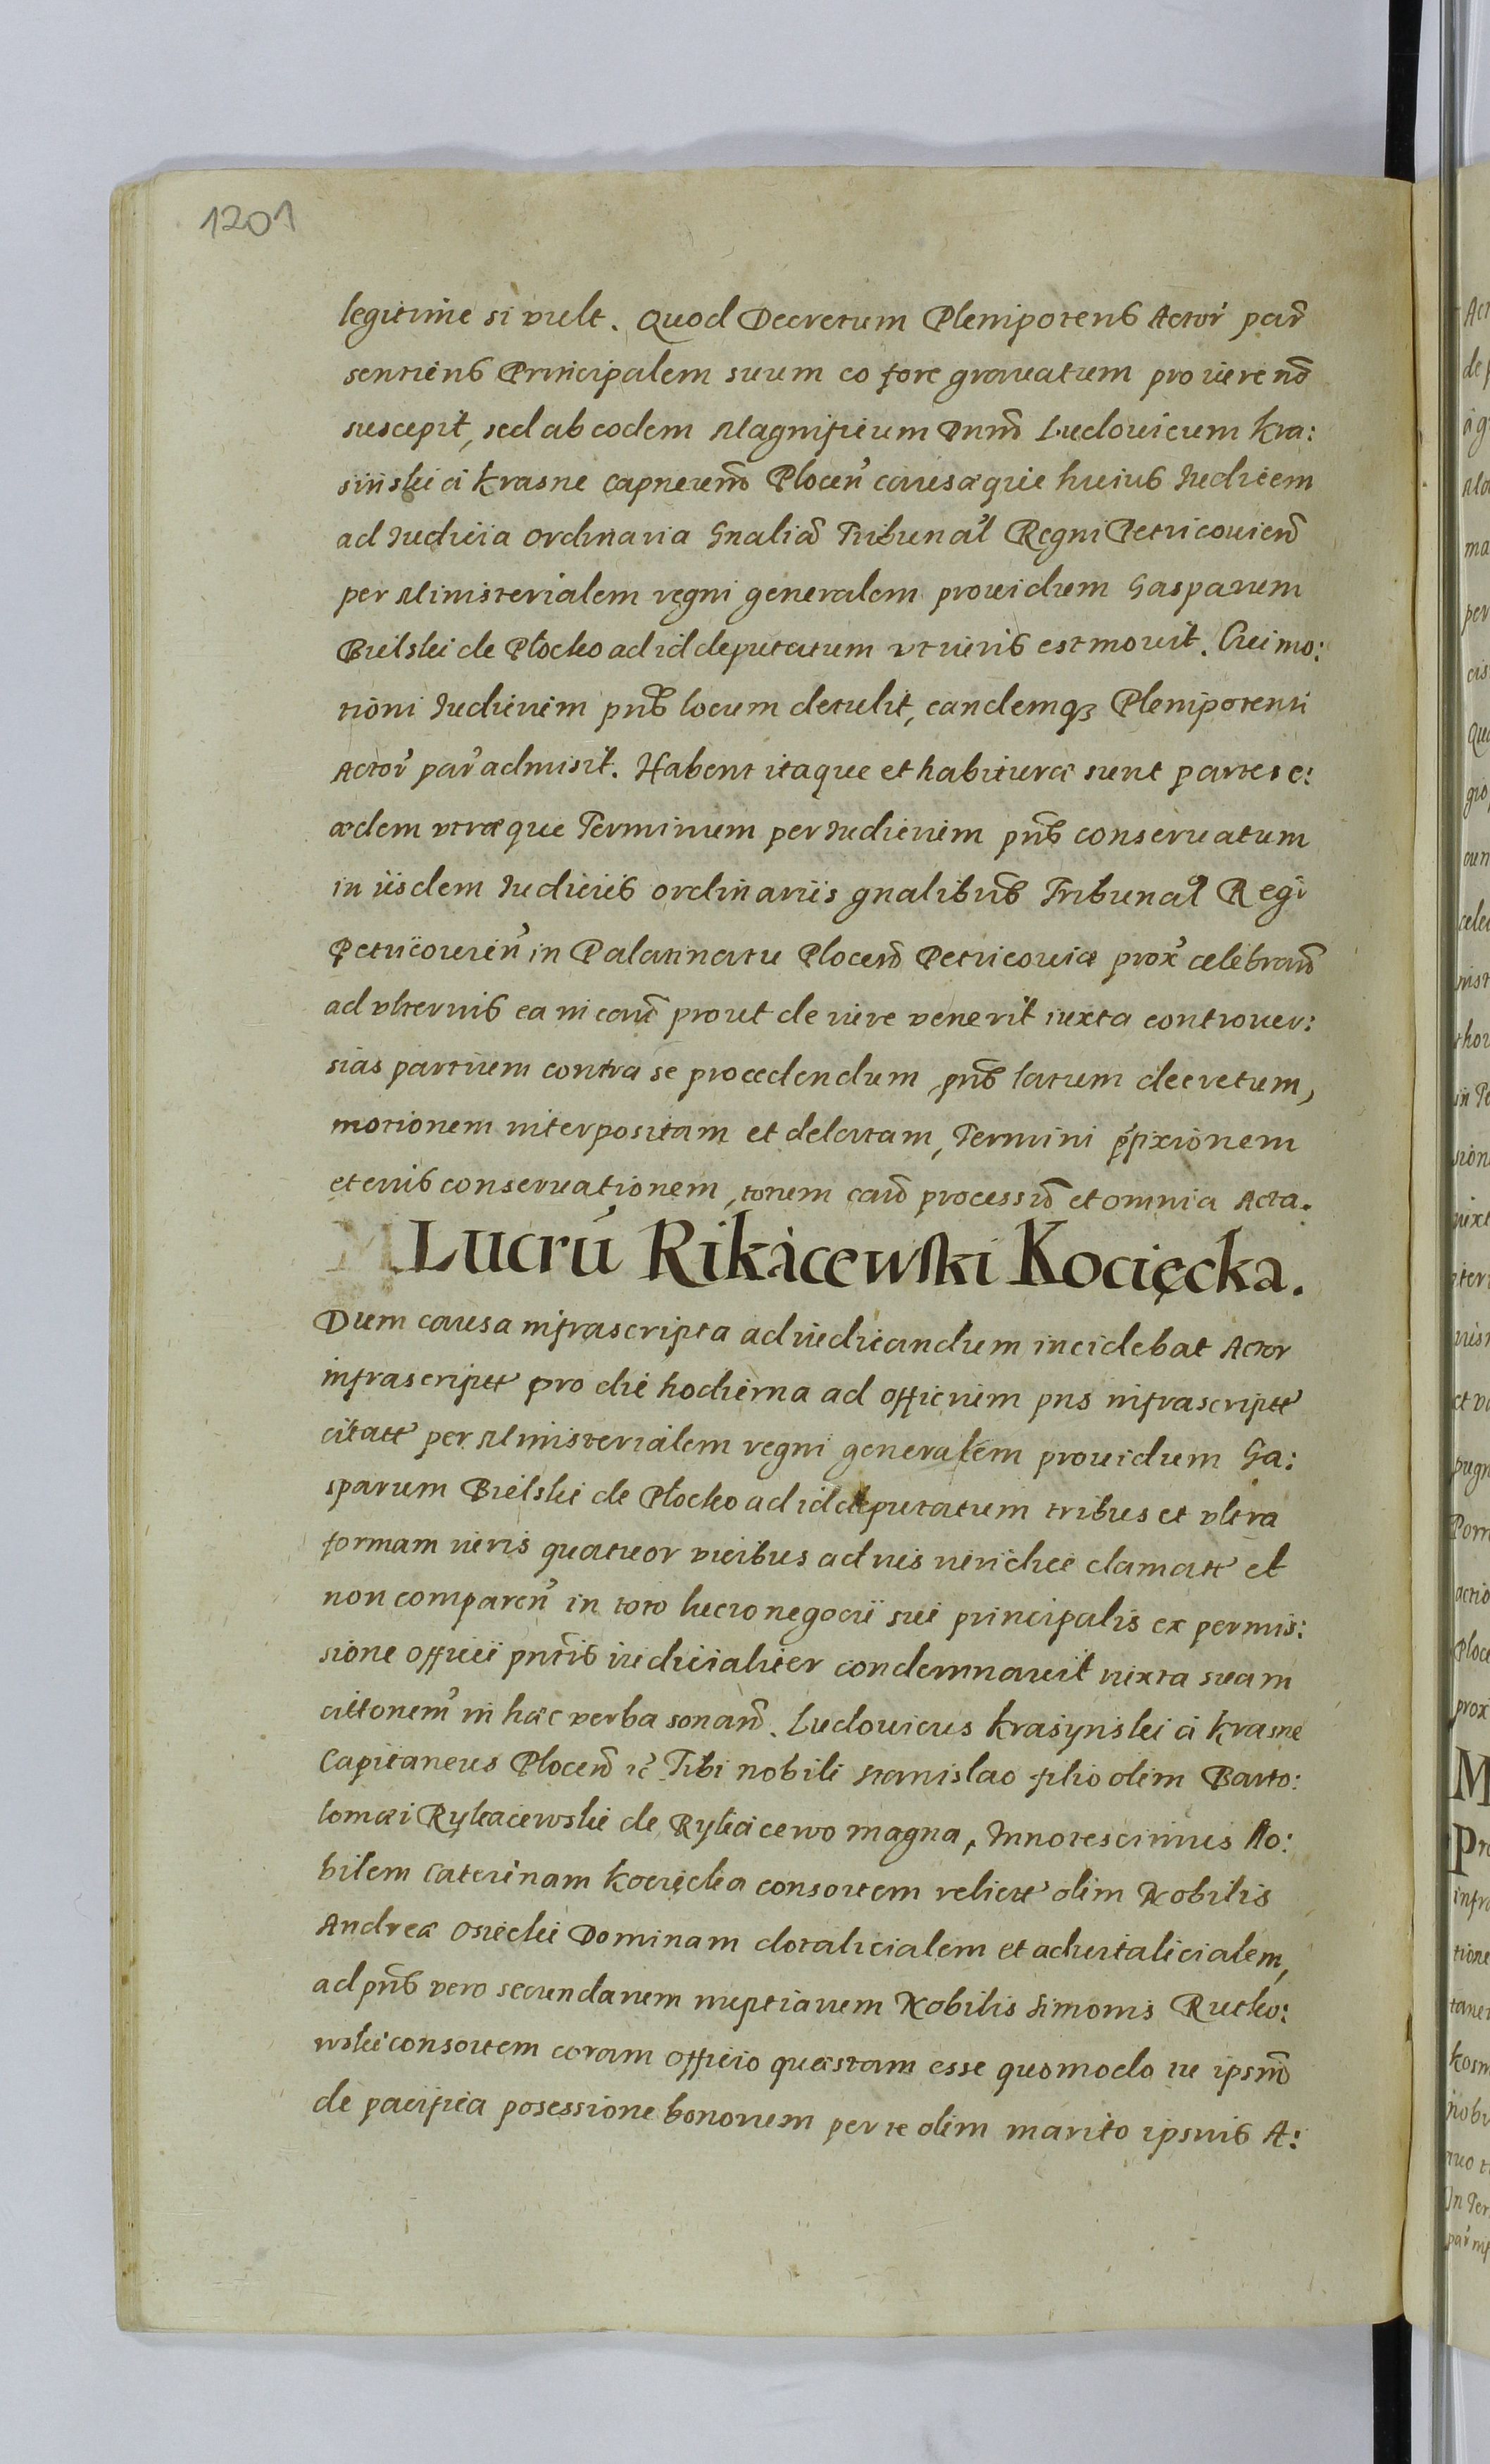 1201
legitime si vult. Quod Decretum Plenipotens Actor̃ par̃
sentiens Principalem suum eo fore gravatum pro iure nõ
suscepit, sed ab eodem Magnificum Dnm̃ Ludovicum Kra:
siński à Krasne Capneum̃ Plocen̄ causæque huius Iudicem
ad Iudicia Ordinaria Gnalia Tribunal̃ Regni Petricovien̄
per Ministerialem regni generalem providum Gasparum
Bielski de Płocko ad id deputatum ut iuris est movit. Cui mo:
tioni Iudicium pns̃ locum detulit, eandemq3 Plenipotenti
Actor̃ par̃ admisit. Habent itaque et habituræ sunt partes e:
ædem utræque Terminum per Iudicium pns̃ conservatum
in iisdem Iudiciis ordinariis gnalibus Tribunal̃ Regi
Petricovien̄ in Palatinatu Plocen̄ Petricoviæ prox̃ celebran̄
ad ulterius ea in cau͠ prout de iure venerit iuxta controver:
sias partium contra se procedendum, pns̃ latum decretum,
motionem interpositam et delatam, Termini p̃fixionem
et eius conservationem, tonem cau͠ processum̃ et omnia Acta.
Lucrũ Rikacewski Kocięcka.
Dum causa infrascripta ad iudicandum incidebat Actor
infrascriptt̃ pro die hodierna ad officium pns infrascriptt̃
citatt̃ per Ministerialem regni generalem providum Ga:
sparum Bielski de Płocko ad id deputatum tribus et ultra
formam iuris quatuor vicibus ad ius iuridice clamatt̃ et
non comparen̄ in toto lucro negocii sui principalis ex permis:
sione officii pntis̃ iudicialiter condemnavit iuxta suam
cittonem̃ in hæc verba sonan̄. Ludovicus Krasynski à Krasne
Capitaneus Plocen̄ rc̃ Tibi nobili Stanislao filio olim Barto:
lomæi Rykacewski de Rykacewo magna, Innotescimus No:
bilem Caterinam Kocięcka consortem relictt̃ olim Nobilis
Andreæ Osiecki Dominam dotalicialem et advitalicialem,
ad pns̃ vero secundarum nuptiarum Nobilis Simonis Rutko:
wski consortem coram officio questam esse quomodo tu ipsm̃
de pacifica posessione bonorum per te olim marito ipsius A: